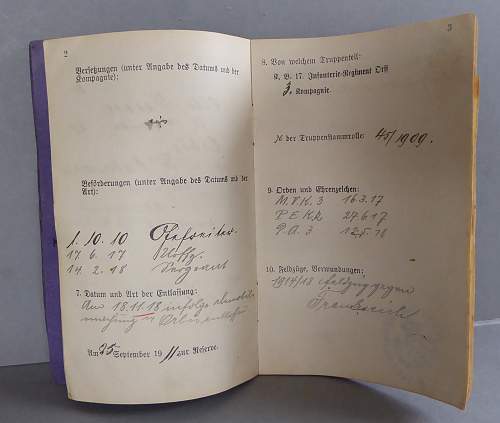 2
Versetzungen (unter Angabe des Datums und der
Kompagnie):
Beförderungen (unter Angabe des Datums und der
Art):
1. 10. 10 Gefreiter.
17. 6. 17 Uoffz.
14. 2. 18 Sergeant
7. Datum und Art der Entlassung:
Am 18.11.18 infolge
Am 25 September 1911 zur Reserve.
3
8. Von welchem Truppenteil:
K. B. 17. Infanterie-Regiment Orff
3. Kompagnie
№ der Truppenstammrolle 45/1909.
9. Orden und Ehrenzeichen:
M.V.K. 3 16.3.17
P.E.K.2 24.6.17
D.A. 3 12.5.18
10. Feldzüge, Verwundungen:
1914/18 Feldzug gegen
Frankreich